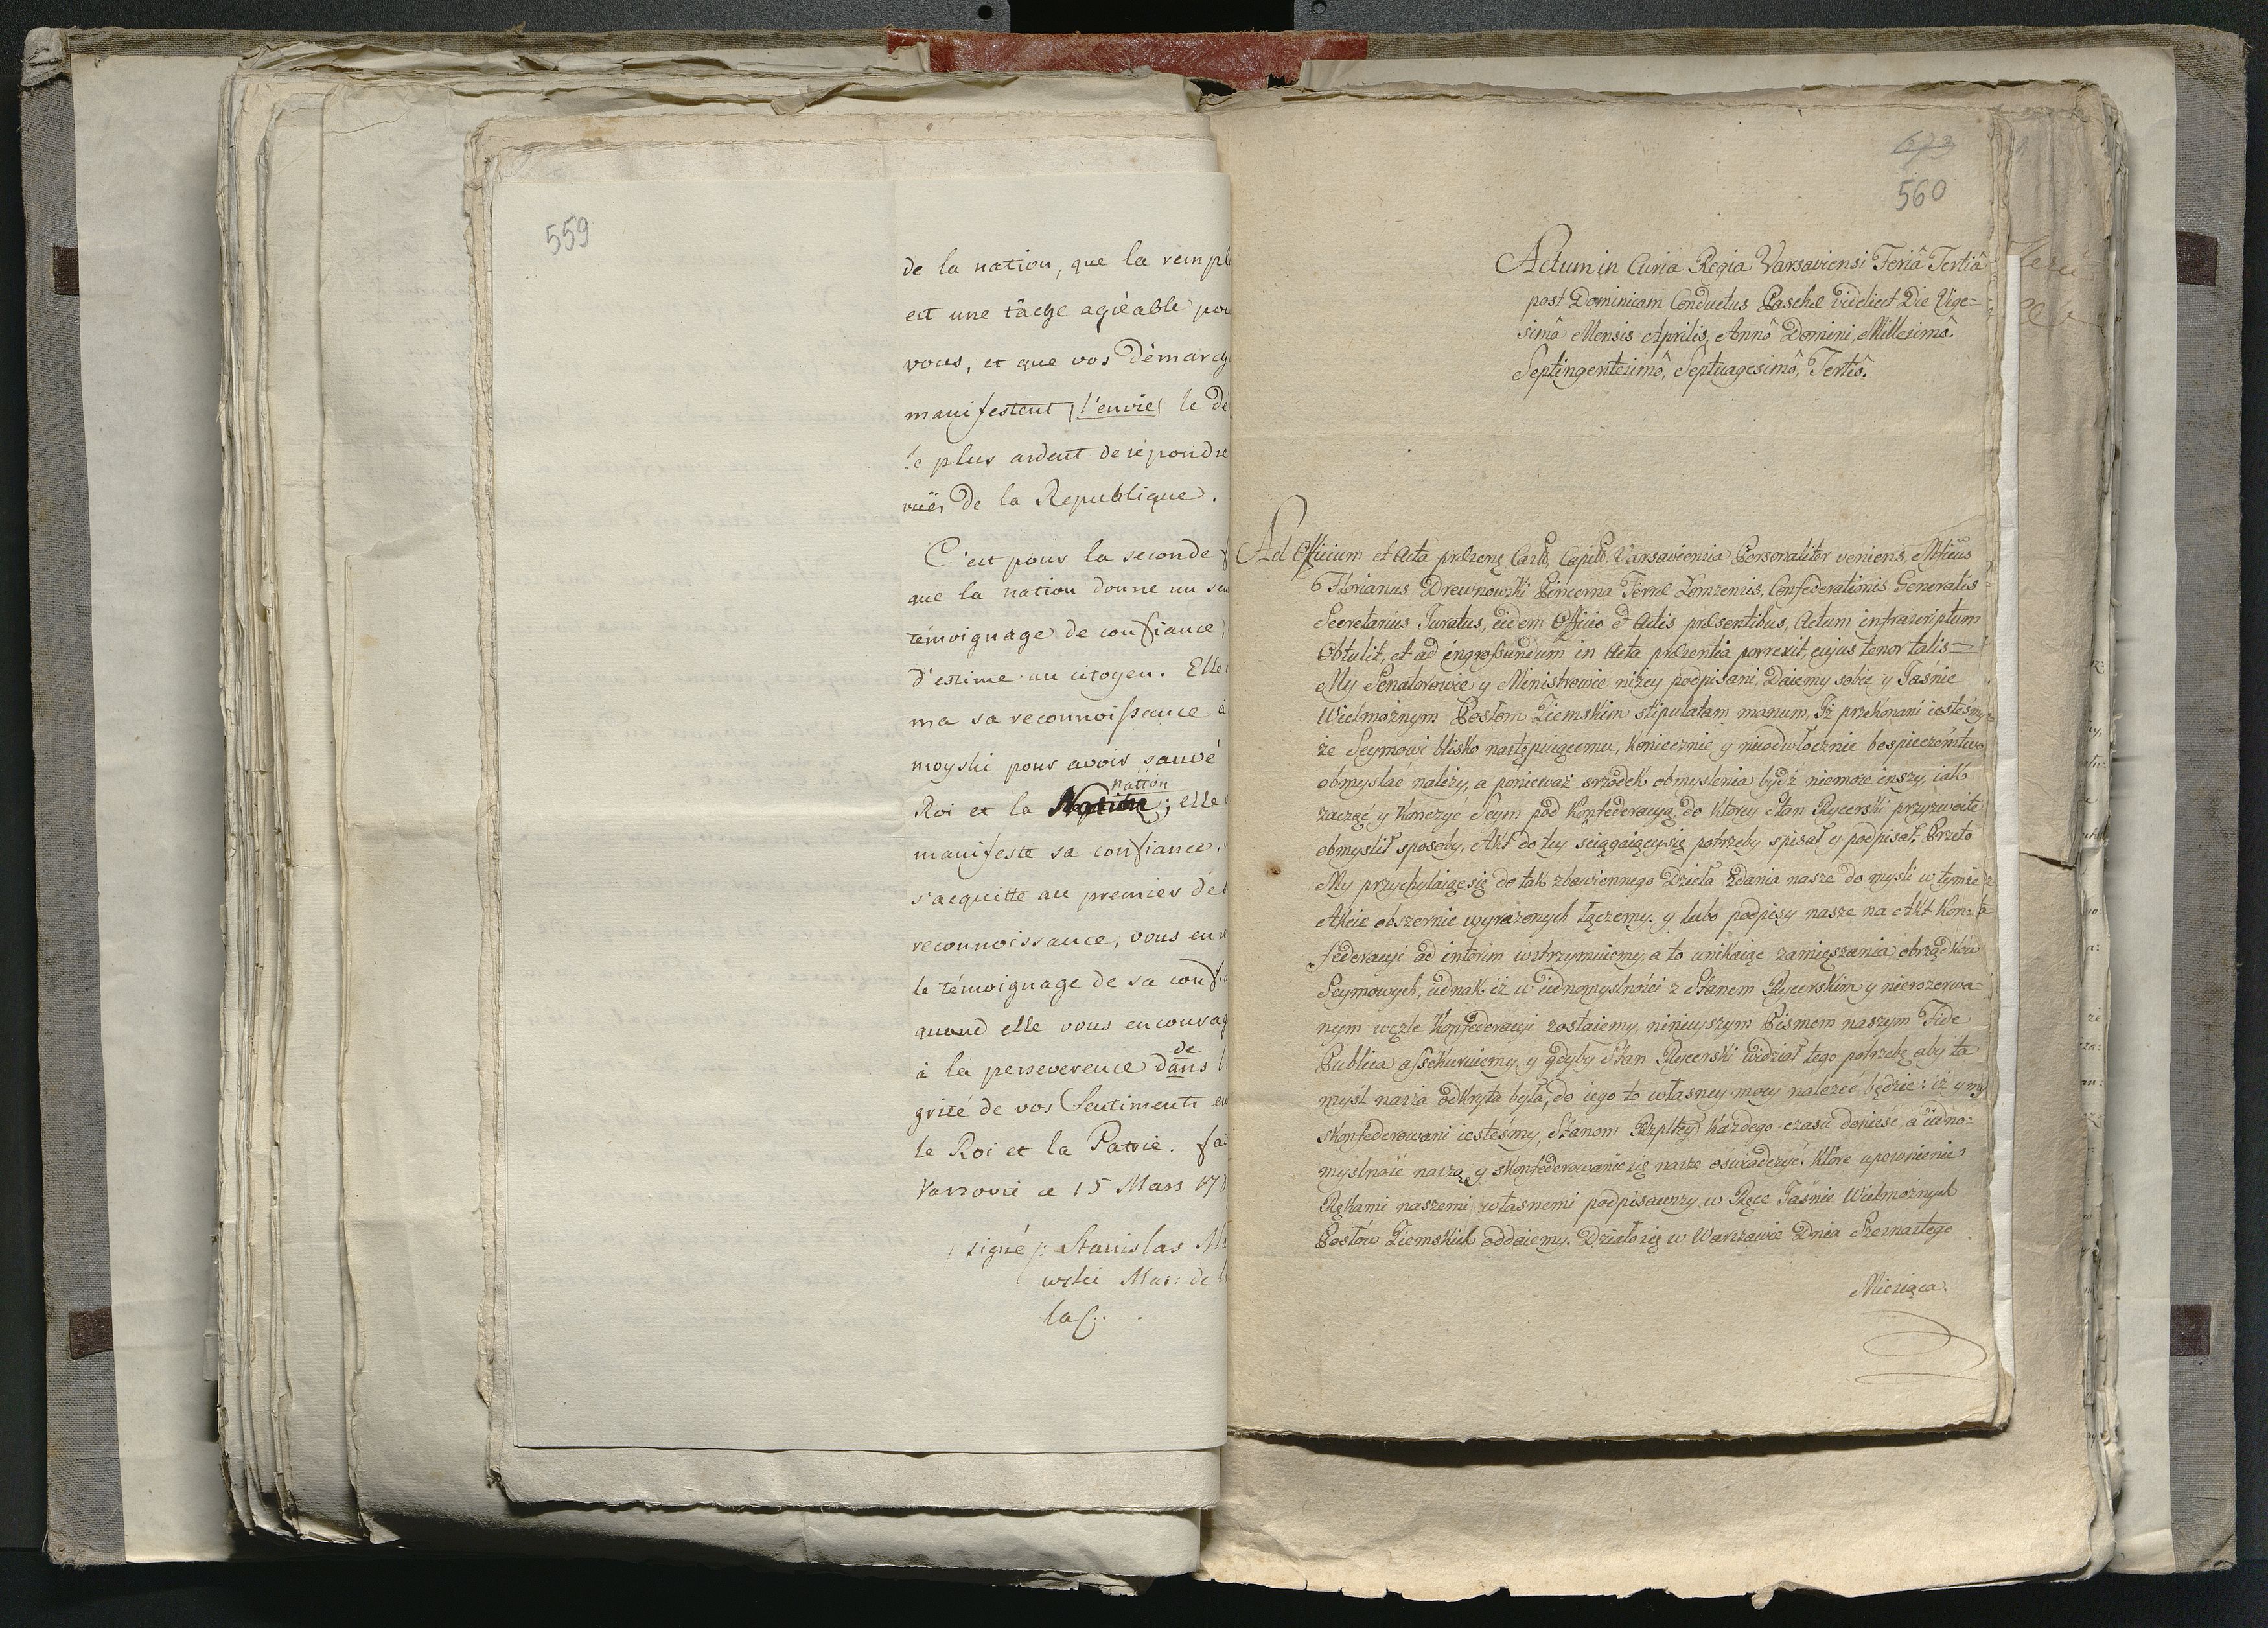 559
de la nation, que la rempl
est une tâche agréable pou
vous, et que vos Démarch
manifestent (l'envie) le De
le plus ardent de répondre
vuës de la Republique.
C'est pour la seconde f
que la nation donne un seu
témoignage de confiance,
d'estime au citoyen. Elle
ma sa reconnoissance à
moyski pour avoir sauvé
nation
Roi et la ; elle
manifeste sa confiance.
s'acquitte au premier de
reconnoissance, vous en
le témoignage de sa confi
quand elle vous encourag
de
à la perseverence dans l
grité de vos Sentiments en
le Roi et la Patrie. fai
Varsovie a 15 Mars 178
signé /: Stanislas Ma
wski Mar: de l
las:.
673
560
Actum in Curia Regia Varsaviensi Feriâ Tertiâ
post Dominicam Conductus Paschæ videlicet Die Vige=
simâ Mensis Aprilis, Annô Domini, Millesimô.
Septingentesimô, Septuagesimô, Tertiô.
Ad Officium et Acta præsens Castr. Capitl. Varsaviensia Personaliter veniens, Mficus
Florianus Drewnowski Pincerna Terræ Łomzensis, Confederationis Generalis
Secretarius Juratus, eidem Officio et Actis præsentibus, Actum infrascriptum
Obtulit, et ad ingrossandum in Acta præsentia porrexit, cujus tenor talis =
My Senatorowie y Ministrowie niżey podpisani, Daiemy sobie y Jaśnie
Wielmożnym Posłom Ziemskim stipulatam manum, Iż przekonani iesteśmy
że Seymowi blisko następuiącemu, koniecznie y nieodwłocznie bespieczeństwo
obmyslać należy, a ponieważ srzodek obmyslenia bydź niemoże inszy, iak
zacząć y kończyć Seym pod Konfederacyą, do ktorey Stan Rycerski przyzwoite
obmyslił sposoby, Akt do tey sciągaiącey się potrzeby spisał y podpisał, Przeto
My przychylaiąc się do tak zbawiennego Dzieła zdania nasze do mysli w tymże
Akcie obszernie wyrażonych łączemy, y lubo podpisy nasze na Akt Kon=
federacyi ad interim wstrzymuiemy, a to unikaiąc zamięszania obrządków
Seymowych, iednak iż w iednomyslności z Stanem Rycerskim y nierozerwa=
nym węzle Konfederacyi zostaiemy, ninieyszym Pismem naszym Fide
Publica assekuruiemy, y gdyby Stan Rycerski widział tego potrzebę, aby ta
mysl nasza odkryta była, do iego to własney mocy należeć będzie: iż y my
skonfederowani iesteśmy, Stanom Rzpltey każdego czasu donieść, a iedno=
myslność naszą, y skonfederowanie się nasze oswiadczyć. Które upewnienie
Rękami naszemi własnemi podpisawszy, w Ręce Jaśnie Wielmożnych
Posłów Ziemskich oddaiemy. Działo się w Warszawie Dnia Szesnastego
Miesiąca.